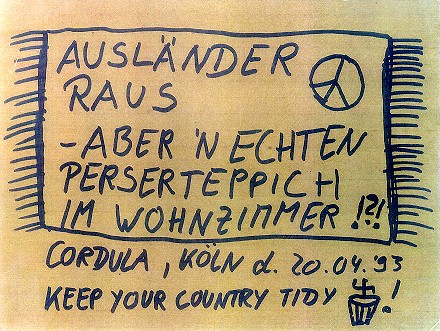 AUSLÄNDER
RAUS
-ABER 'N ECHTEN
PERSERTEPPICH
IM WOHNZIMMER !?!
CORDULA, KÖLN d. 20.04.93
KEEP YOUR COUNTRY TIDY !